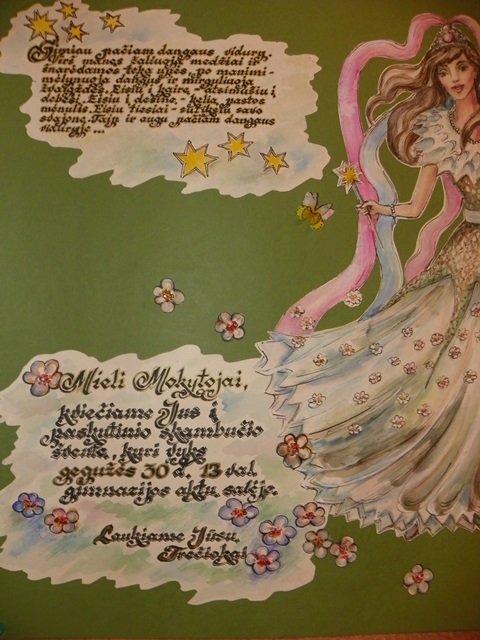 Ėmiau pačiam dangaus vidury.
Virš manęs žaliuoja medžiai ir
šnarėdamos teka upės, po manimi -
mėlynuoja dangus ir mirguliuoja
žvaigždės. Eisiu į kairę - atsimušiu į
debesį. Eisiu į dešinę - kelią pastos
mėnulis. Eisiu tiesiai - sutiksiu savo
svajonę. Taip ir augu pačiam dangaus
viduryje ...
Mieli Mokytojai,
kviečiame Jus į
paskutinio skambučio
šventę, kuri vyks
gegužės 30 d. 13 val.
gimnazijos aktų salėje.
Laukiame Jūsų,
Trečiokai